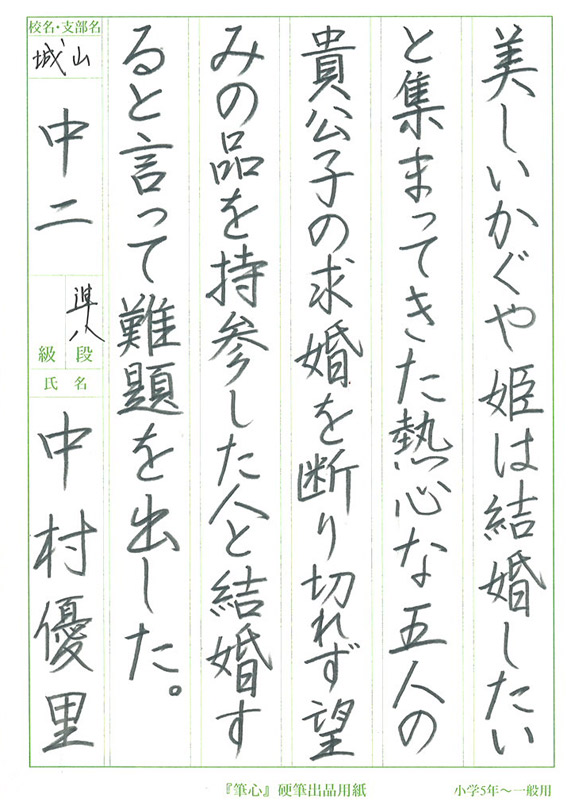 美しいかぐや姫は結婚したい
と集まってきた熱心な五人の
貴公子の求婚を断り切れず望
みの品を持参した人と結婚す
ると言って難題を出した。
校名・支部名
城山
中二
準八
段
級
氏名
中村優里
『筆心』硬筆出品用紙
小学5年〜一般用